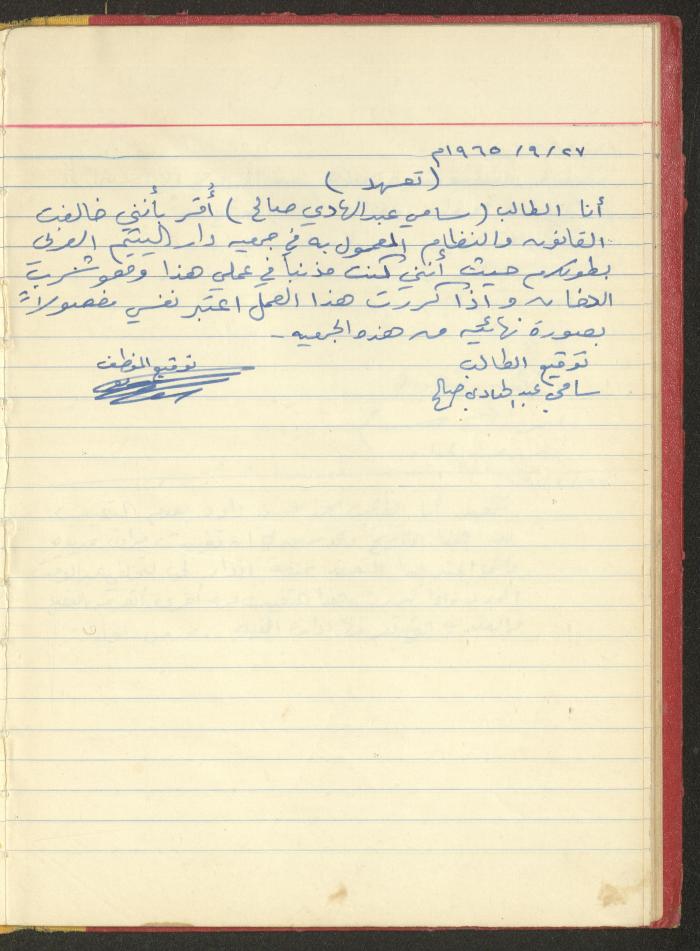 ٢٧ / ٩ / ١٩٦٥م
( تعهد )
أنا الطالب ( سامي عبد الهادي صالح ) أُقر بأنني خالفت
القانون والنظام المعمول به في جمعيه دار اليتيم العربي
بطولكرم حيث أنني كنت مذنباً في عملي هذا وهو شرب
الدخان و اذا كررت هذا العمل اعتبر نفسي مفصولاً
بصورة نهائيه من هذه الجمعيه -
توقيع الطالب توقيع الموظف
سامي عبد الهادي صالح